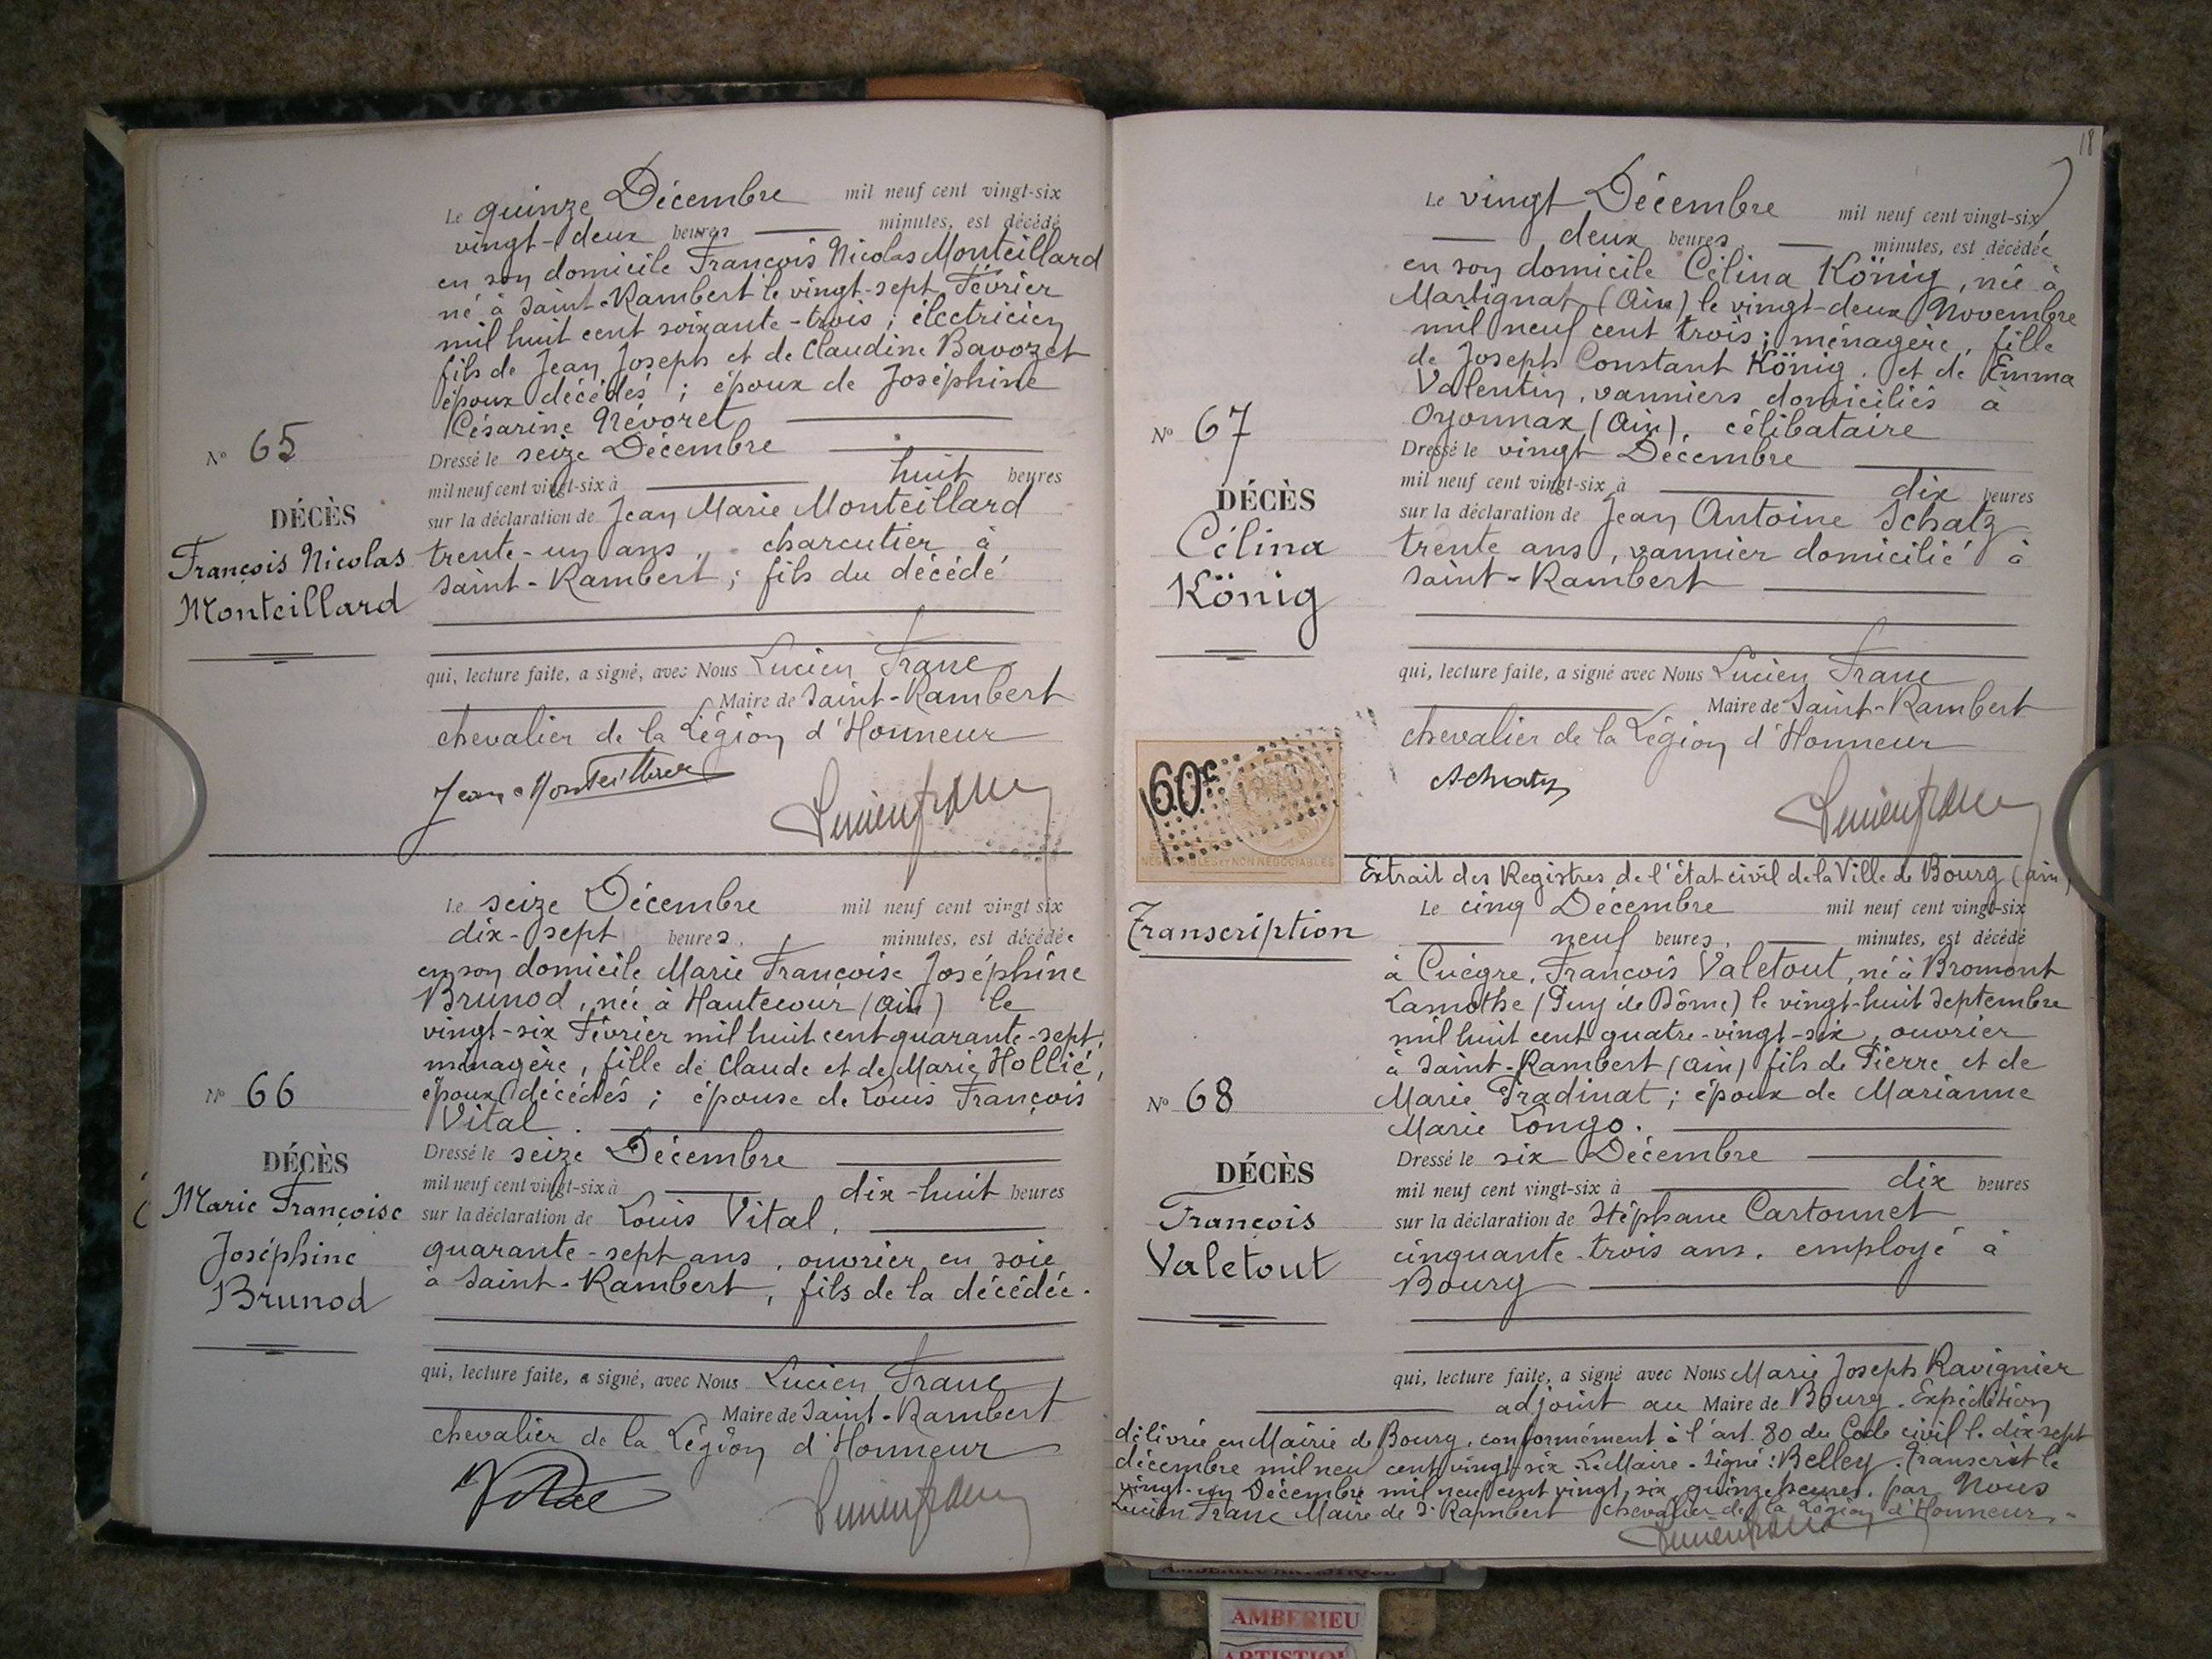 Le quinze Décembre mil neuf cent vingt-six
vingt-deux heures — minutes, est décédé
en son domicile François Nicolas Monteillard
né à Saint-Rambert le vingt-sept Février
mil huit cent soixante-trois ; électricien
fils de Jean Joseph et de Claudine Bavozet
époux décédés ; époux de Joséphine
Césarine Névoret
N° 65
Dressé le seize Décembre
mil neuf cent vingt-six à huit heures
DÉCÈS
François Nicolas
Monteillard
sur la déclaration de Jean Marie Monteillard
trente-un ans, charcutier à
Saint-Rambert ; fils du décédé
qui, lecture faite, a signé, avec Nous Lucien Franc
Maire de Saint-Rambert
chevalier de la Légion d'Honneur
Jean Monteillard
Lucien Franc
Le seize Décembre mil neuf cent vingt six
dix-sept heures, — minutes, est décédée
en son domicile Marie Françoise Joséphine
Brunod, née à Hautecour (Ain) le
vingt-six Février mil huit cent quarante-sept,
ménagère, fille de Claude et de Marie Hollié,
époux décédés ; épouse de Louis François
Vital.
N° 66
Dressé le seize Décembre
mil neuf cent vingt-six à dix-huit heures
DÉCÈS
Marie Françoise
Joséphine
Brunod
sur la déclaration de Louis Vital,
quarante-sept ans, ouvrier en soie
à Saint-Rambert, fils de la décédée.
qui, lecture faite, a signé, avec Nous Lucien Franc
Maire de Saint-Rambert
chevalier de la Légion d'Honneur
Vital
Lucien Franc
18
Le vingt Décembre mil neuf cent vingt-six
— deux heures — minutes, est décédée
en son domicile Célina König, née à
Martignat (Ain) le vingt-deux Novembre
mil neuf cent trois ; ménagère, fille
de Joseph Constant König. et de Emma
Valentin, vanniers domiciliés à
Oyonnax (Ain), célibataire
N° 67
Dressé le vingt Décembre
mil neuf cent vingt-six à dix heures
DÉCÈS
Célina
König
sur la déclaration de Jean Antoine Schatz
trente ans, vannier domicilié à
Saint-Rambert
qui, lecture faite, a signé avec Nous Lucien Franc
Maire de Saint-Rambert
chevalier de la Légion d'Honneur
Schatz
Lucien Franc
60c
NÉGOCIABLES ET NON NÉGOCIABLES
Extrait des Registres de l'état civil de la Ville de Bourg (ain)
Transcription
Le cinq Décembre mil neuf cent vingt-six
— neuf heures, — minutes, est décédé
à Cuègre, François Valetout, né à Bromont
Lamothe (Puy de Dôme) le vingt-huit Septembre
mil huit cent quatre-vingt-six, ouvrier
à Saint-Rambert (Ain) fils de Pierre et de
Marie Pradinat ; époux de Marianne
Marie Longo.
N° 68
Dressé le six Décembre
mil neuf cent vingt-six à dix heures
DÉCÈS
François
Valetout
sur la déclaration de Stéphane Cartonnet
cinquante-trois ans. employé à
Bourg
qui, lecture faite, a signé avec Nous Marie Joseph Ravignier
adjoint au Maire de Bourg. Expédition
délivrée en Mairie de Bourg, conformément à l'art. 80 du Code civil le dix-sept
décembre mil neuf cent vingt-six. Le Maire. Signé : Belley. Transcrit le
vingt-un Décembre mil neuf cent vingt six, quinze heures. par Nous
Lucien Franc Maire de St Rambert chevalier de la Légion d'Honneur.
Lucien Franc
AMBERIEU ARTISTIQUE
AMBERIEU
ARTISTIQU